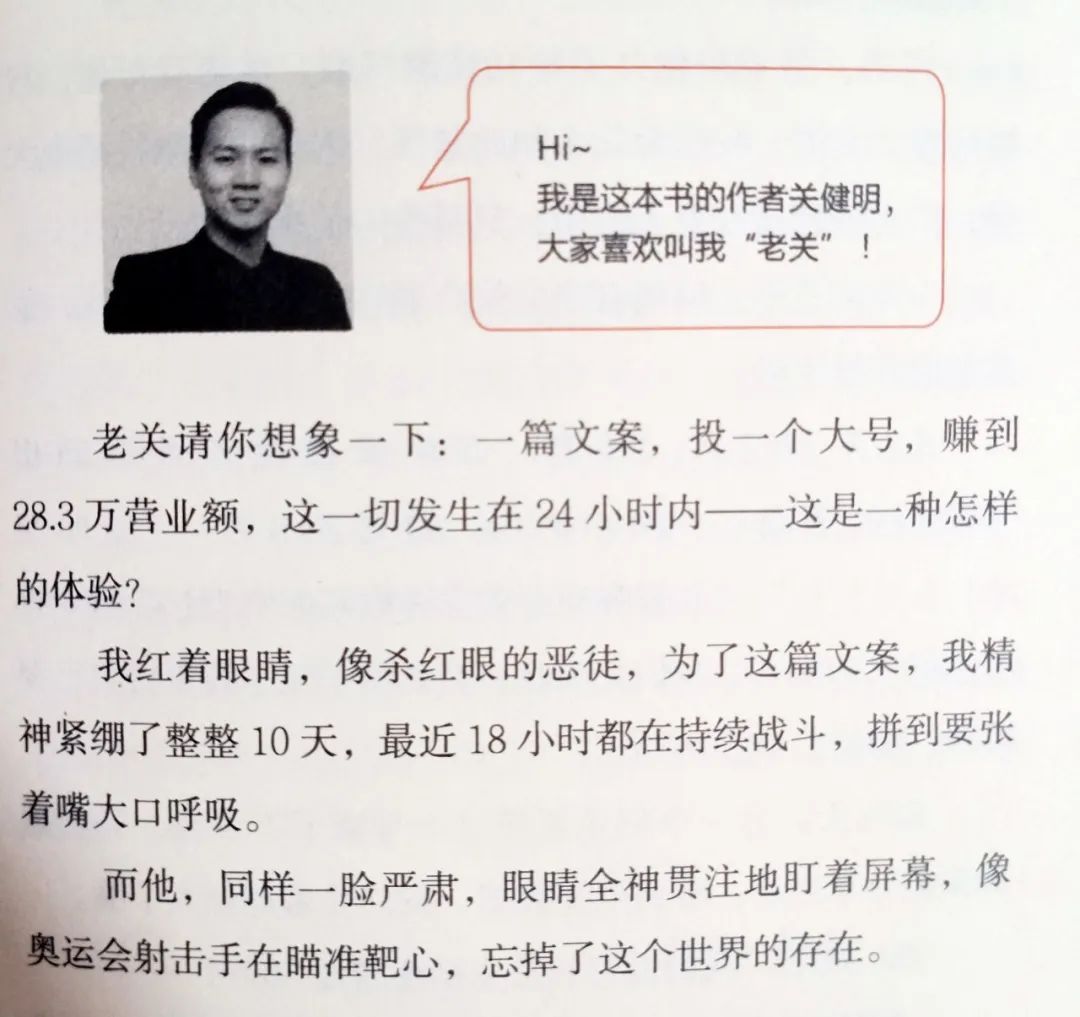 Hi~
我是这本书的作者关健明，
大家喜欢叫我“老关”！
老关请你想象一下：一篇文案，投一个大号，赚到
28.3 万营业额，这一切发生在 24 小时内——这是一种怎样
的体验？
我红着眼睛，像杀红眼的恶徒，为了这篇文案，我精
神紧绷了整整 10 天，最近 18 小时都在持续战斗，拼到要张
着嘴大口呼吸。
而他，同样一脸严肃，眼睛全神贯注地盯着屏幕，像
奥运会射击手在瞄准靶心，忘掉了这个世界的存在。